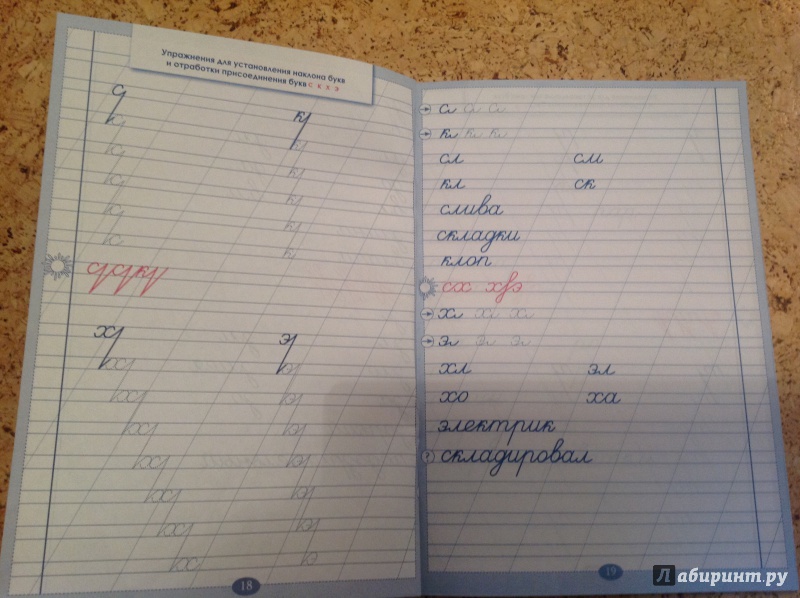 Упражнения для установления наклона букв
и отработки присоединения букв с к х э
с
к
с
к
с
к
с
к
с
к
с
к
с с к
х э
х э
х э
х э
х э
х э
х э
х э
18
сл сл сл
кл кл кл
сл см
кл ск
слива
складки
клоп
сх х э
хл хл хл
эл эл эл
хл эл
хо ха
электрик
? складировал
19
Лабиринт.ру